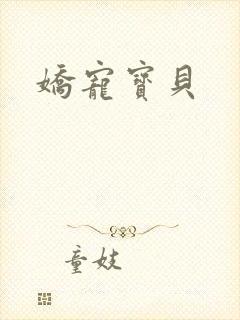 嬌寵寶貝
童妓